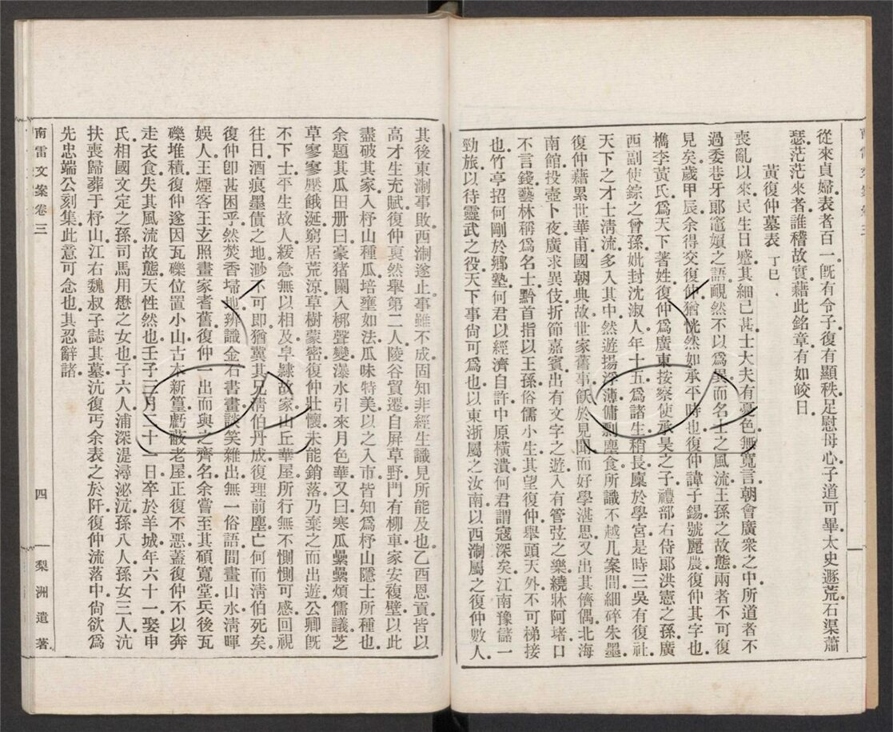 從來貞婦表者百一旣有令子復有顯秩足慰母心子道可畢太史遜荒石渠蕭
瑟茫茫來者誰稽故實藉此銘章有如皎日
黃復仲墓表 丁巳
喪亂以來民生日蹙其細已甚士大夫有憂色無寬言朝會廣衆之中所道者不
過委巷牙郎竈媼之語靦然不以爲異而名士之風流王孫之故態兩者不可復
見矣歲甲辰余得交復仲猶恍然如承平時也復仲諱子錫號麗農復仲其字也
檇李黃氏爲天下著姓復仲爲廣東按察使承昊之子禮部右侍郎洪憲之孫廣
西副使錝之曾孫妣封沈淑人年十五爲諸生稍長廩於學宮是時三吳有復社
天下之才士淸流多入其中然遊揚浮薄傭剽塵食所識不越几案間細碎朱墨
復仲藉累世華甫國朝典故世家舊事飫於見聞而好學湛思又出其儕偶北海
南館投壺卜夜廣求異伎折節嘉賓出有文字之遊入有管弦之樂繞牀阿堵口
不言錢藝林稱爲名士黔首指以王孫俗儒小生其望復仲舉頭天外不可梯接
也竹亭招何剛於鄕塾何君以經濟自許中原橫潰何君謂寇深矣江南豫儲一
勁旅以待靈武之役天下事尙可爲也以東浙屬之汝南以西浙屬之復仲數人
其後東浙事敗西浙遂止事雖不成固知非經生識見所能及也乙酉恩貢皆以
高才生充賦復仲裒然舉第二人陵谷貿遷自屏草野門有柳車家女複壁以此
盡破其家入杼山種瓜培壅如法瓜味特美以之入市皆知爲杼山隱士所種也
余題其瓜田册曰豪猪闌入梆聲變瀑水引來月色華又曰寒瓜纍纍煩儒議芝
草寥寥壓餓涎窮居荒涼草樹蒙密復仲壯懷未能銷落乃棄之而出遊公卿旣
不下士平生故人緩急無以相及皁隸故家山丘華屋所行無不惻惻可感回視
往日酒痕墨債之地渺不可卽猶冀其兄淸伯丹成復理前塵亡何而淸伯死矣
復仲卽甚困乎然焚香埽地辨識金石書畫談笑雜出無一俗語間畫山水淸暉
娛人王煙客王玄照畫家耆舊復仲一出而與之齊名余嘗至其碩寬堂兵後瓦
礫堆積復仲遂因瓦礫位置小山古木新篁虧蔽老屋正復不惡蓋復仲不以奔
走衣食失其風流故態天性然也壬子三月二十一日卒於羊城年六十一娶申
氏相國文定之孫司馬用懋之女也子六人浦深湜潯泌沆孫八人孫女三人沆
扶喪歸葬于杼山江右魏叔子誌其墓沆復丐余表之於阡復仲流落中尙欲爲
先忠端公刻集此意可念也其忍辭諸
南雷文案卷三
四
梨洲遺著